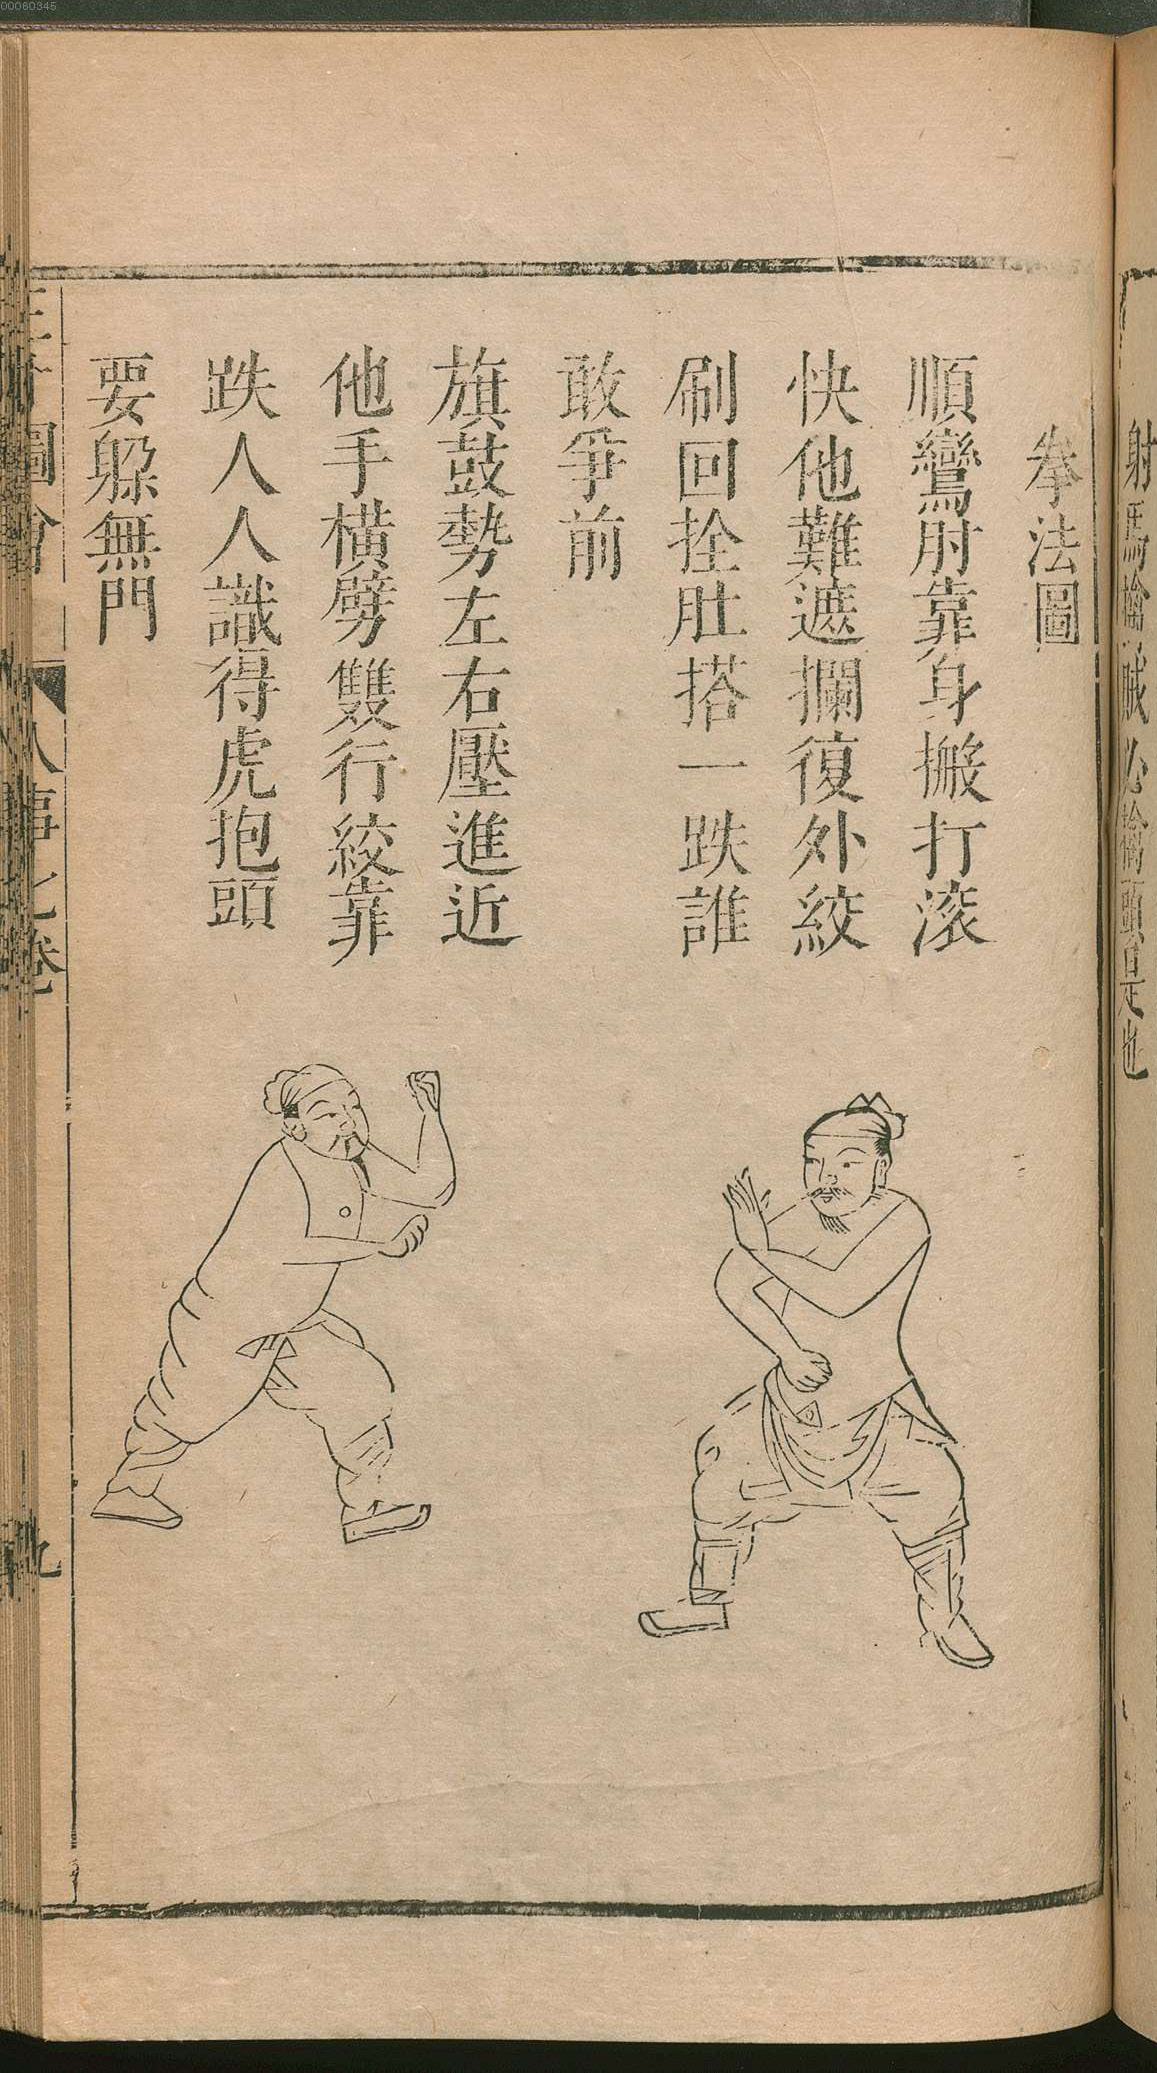 00060345
射馬擒賊必擒頭是也
拳法圖
順鸞肘靠身搬打滚
快他難遮攔復外絞
刷回拴肚搭一跌誰
敢爭前
旗鼓勢左右壓進近
他手橫劈雙行絞靠
跌人人識得虎抱頭
要躲無門
圖會
人事七卷
九